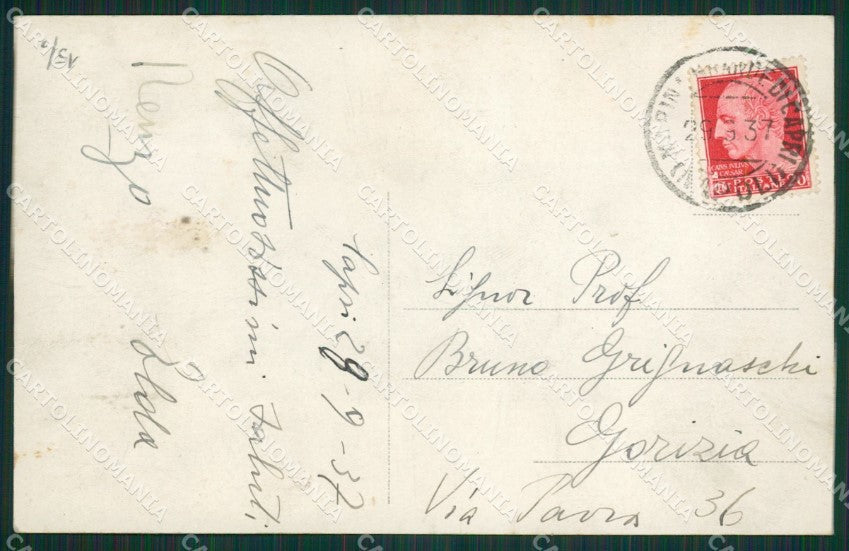 13/9
Renzo
Affettuosissimi saluti
Capri 29-9-37
Elda
Signor Prof.
Bruno Grignaschi
Gorizia
Via Pavia 36
MARINA GRANDE DI CAPRI
29.9.37
CAIVS IVLIVS
CAESAR
CARTOLINOMANIA